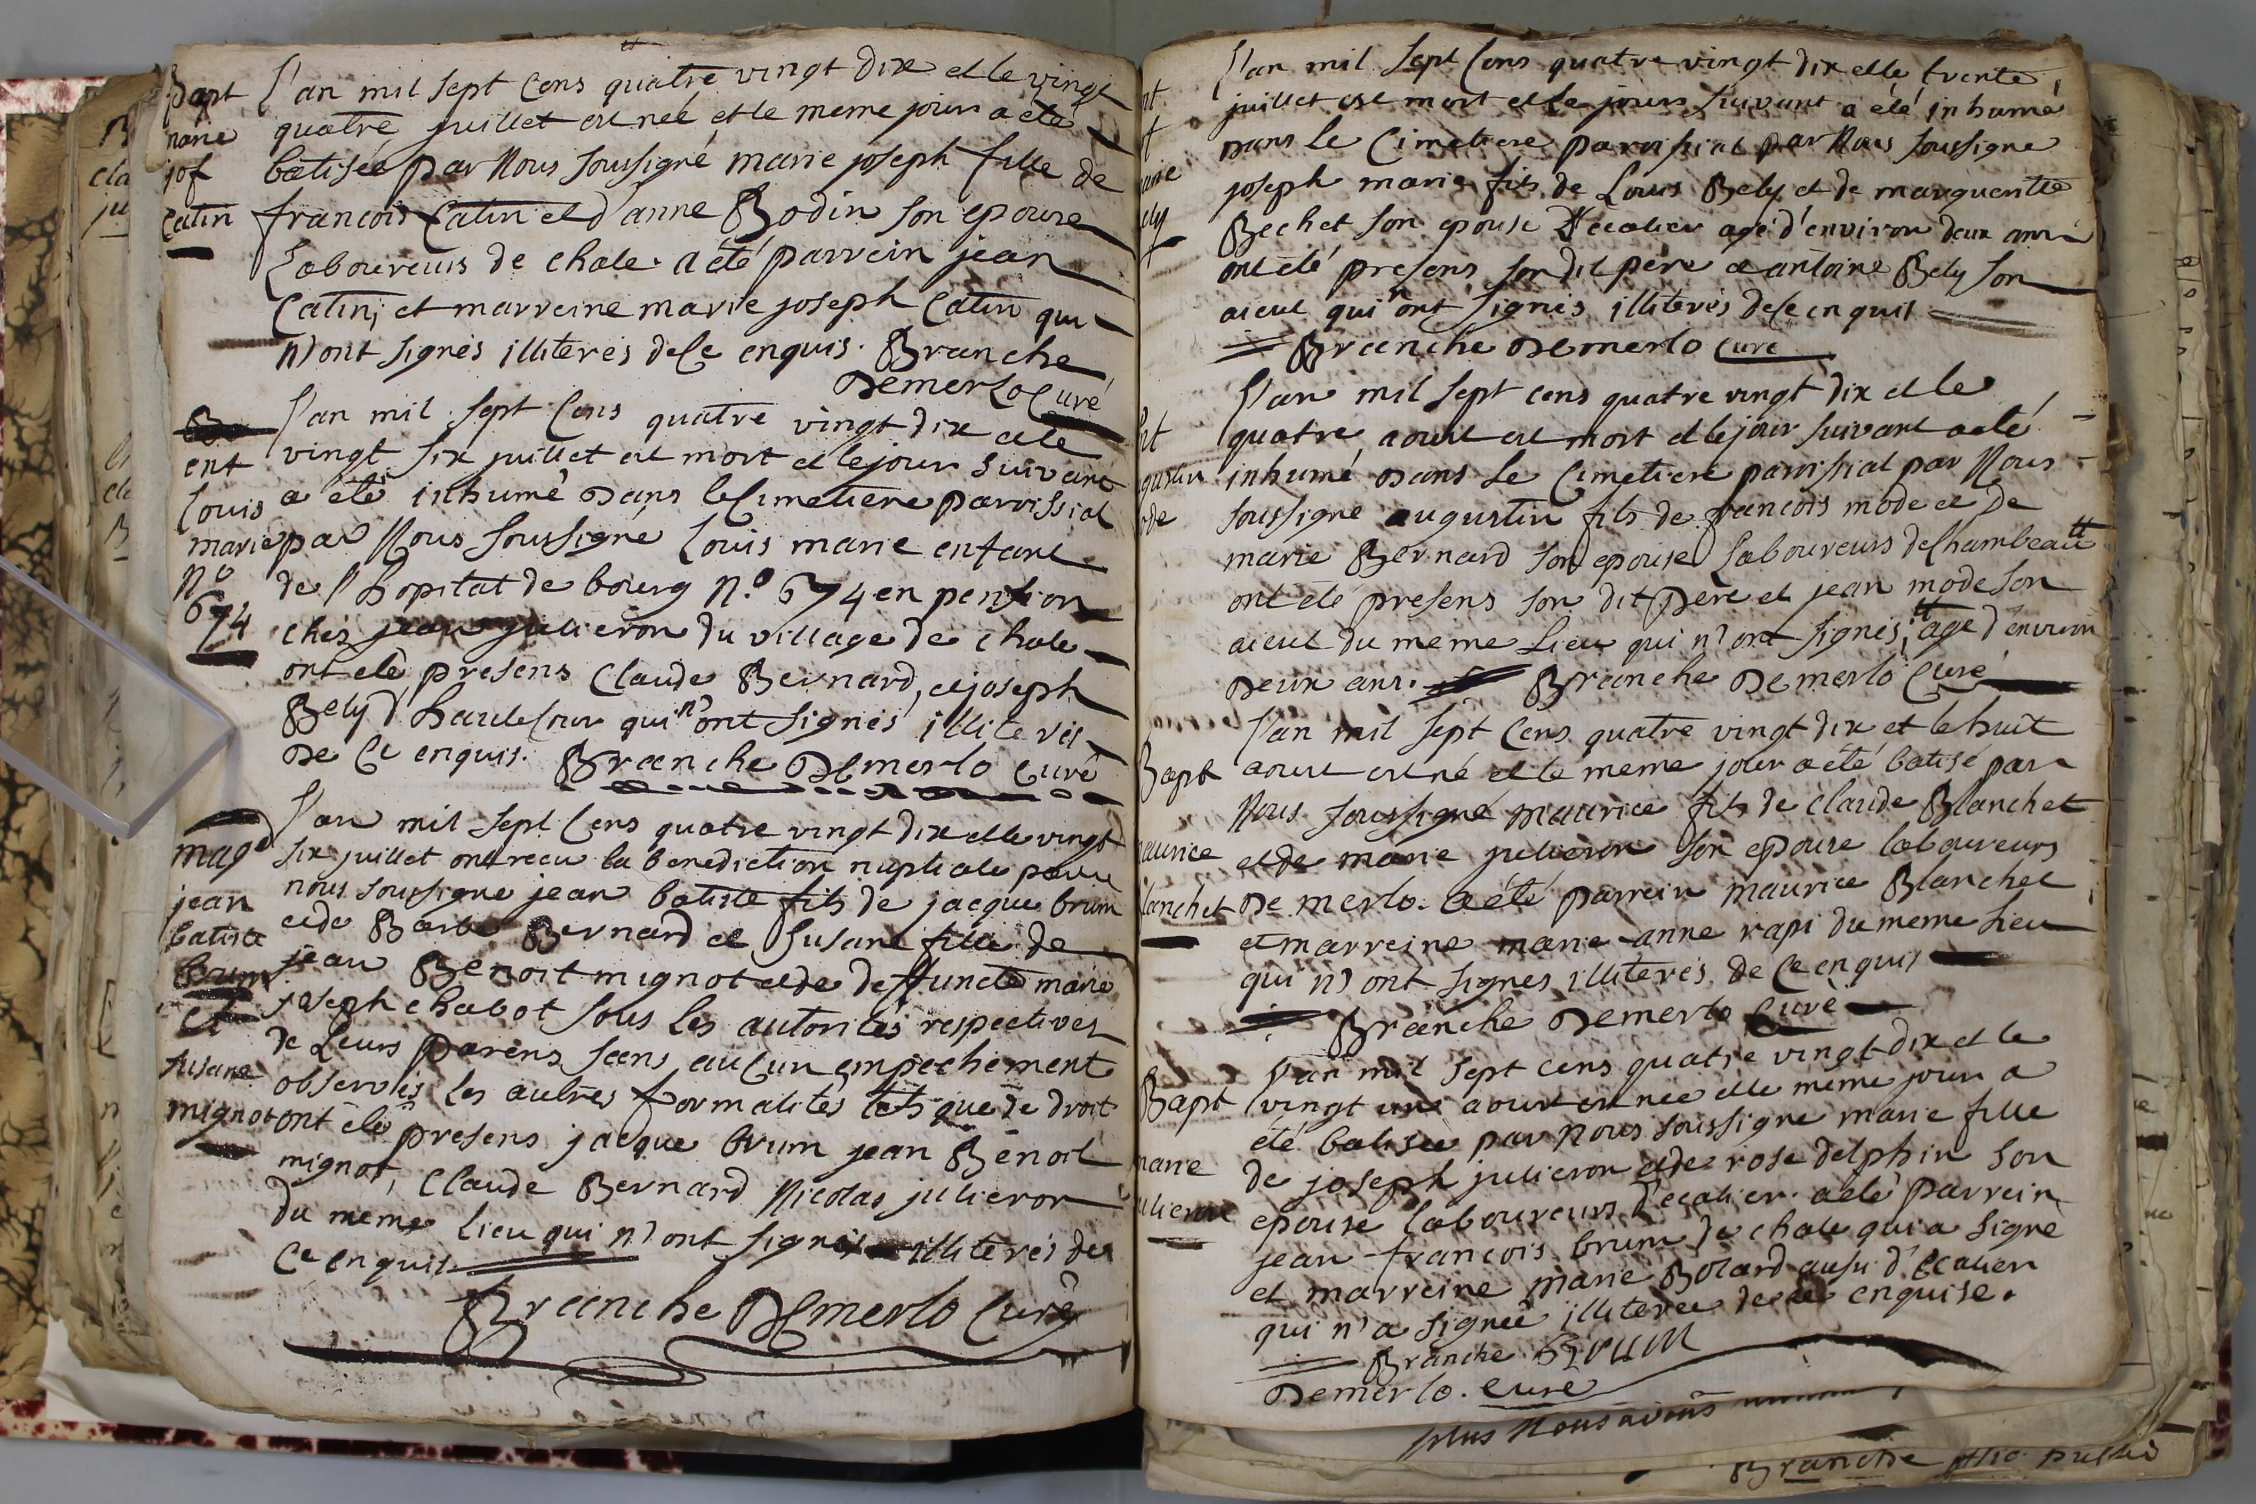 Bapt
marie
jos
Catin
L'an mil sept cens quatre vingt dix et le vingt
quatre juillet est née et le meme jour a été
batisée par Nous soussigné marie joseph fille de
francois Catin et d'anne Bodin son epouse
Laboureurs de chale. a été parrein jean
Catin, et marreine marie joseph Catin qui
n'ont signés illiterés de Ce enquis. Branche
Demerlo Curé
ent
Louis
marie
N.o
674
L'an mil sept cens quatre vingt dix et le
vingt six juillet est mort et le jour suivant
a été inhumé Dans le Cimetiere paroissial
par Nous soussigné Louis marie enfant
de l'hopital de bourg N.o 674 en pension
chez jean julieron du village de chale
ont été presens Claude Bernard, et joseph
Bely d'hautecour qui n'ont signés illiterés
De Ce enquis. Branche Demerlo Curé
mage
jean
batiste
brum
et
susane
mignot
L'an mil sept Cens quatre vingt dix et le vingt
six juillet ont recu la benediction nuptiale par
nous soussigné jean batiste fils de jacque brum
et de Barbe Bernard et Susane fille de
jean Benoit mignot et de deffuncte marie
joseph chabot sous les autorités respectives
de Leurs parens sans aucun empechement
observés les autres formalités tels que de droit
ont été presens jacque brum jean Benoit
mignot, Claude Bernard Nicolas julieron
du meme Lieu qui n'ont signés illiterés de
Ce enquis
Branche Demerlo Curé
L'an mil sept Cens quatre vingt dix et le trente
juillet est mort et le jour suivant a été inhumé
Dans le Cimetiere paroissial par Nous soussigné
joseph marie fils de Louis Bely et de marguerite
Bechet son epouse d'ecalier agé d'environ deux ans
ont été presens son dit père et antoine Bely son
aieul qui n'ont signés illiterés de Ce enquis
Branche Demerlo Curé
L'an mil sept cens quatre vingt dix et le
quatre aoust est mort et le jour suivant a été
inhumé Dans le Cimetiere paroissial par Nous
soussigné augustin fils de francois mode et De
marie Bernard son epouse Laboureurs de Chambeau
ont été presens son dit Pere et jean mode son
aieul du meme Lieu qui n'ont signés; agé d'environ
Deux ans. Branche Demerlo Curé
Bapt
L'an mil sept Cens quatre vingt dix et le huit
aoust est né et le meme jour a été batisé par
Nous soussigné maurice fils de claude Blanchet
et de marie julieron son epouse laboureurs
De merlo. a été parrein maurice Blanchet
et marreine marie-anne rapi du meme Lieu
qui n'ont signés illiterés de Ce enquis
Branche Demerlo Curé
Bapt
L'an mil sept cens quatre vingt dix et le
vingt un aoust est née et le meme jour a
été batisée par Nous soussigné marie fille
de joseph julieron et de rose delphin son
epouse laboureurs d'ecalier. a été parrein
jean francois brum de chale qui a signé
et marreine marie Bolard aussi d'ecalier
qui n'a signée illiterée de ce enquise.
Branche Brum
Demerlo. Curé
plus Nous avons
Branche